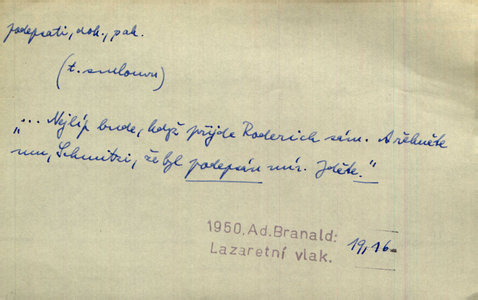 podepsati, dok., pak.
(t. smlouvu)
"... Nejlíp bude, když přijde Roderich sám. A řekněte
mu, Schmitzi, že byl podepsán mír. Jděte."
1950, Ad. Branald:
Lazaretní vlak.
19, 16-